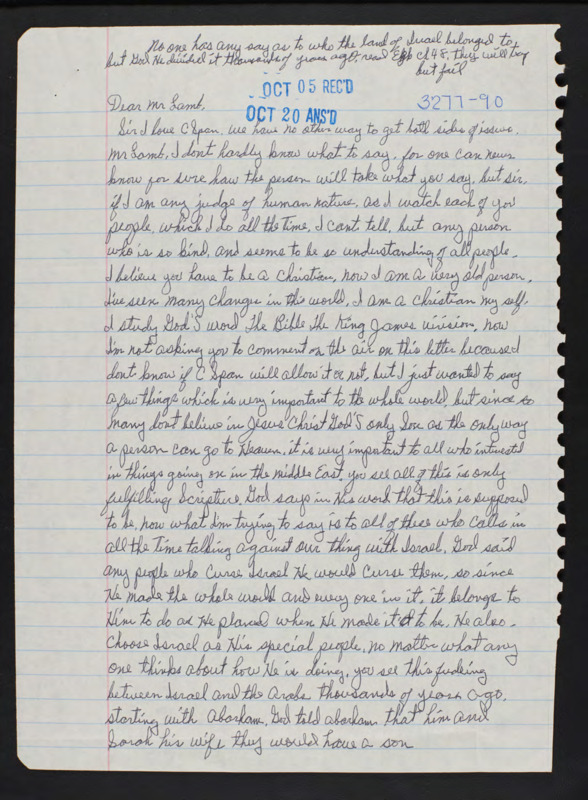 No one has any say as to who the land of Israel belonged to
but God He divided it thousands of years ago, read Ch 48, they will try
but fail
OCT 05 REC'D
Dear Mr Lamb,
OCT 20 ANS'D
3277-90
Sir I love C Span. we have no other way to get both sides of issues.
Mr Lamb, I dont hardly know what to say, for one can never
know for sure how the person will take what you say, but sir,
if I am any judge of human nature, as I watch each of you
people, which I do all the time, I cant tell, but any person
who is so kind, and seems to be so understanding of all people.
I believe you have to be a Christian, now I am a very old person,
Ive seen many changes in this world, I am a christian my self.
I study God'S word The Bible The King James , now
Im not asking you to comment on the air on this letter becaused
dont know if C Span will allow it or not, but I just wanted to say
a few things which is very important to the whole world, but since so
many dont believe in Jesus Christ God'S only Son as the only way
a person can go to Heaven, it is very important to all who intrested
in things going on in the middle East, you see all of this is only
fulfilling Scripture, God says in His word that this is supposed
to be, now what Im trying to say is to all of these who calls in
all the time talking against our thing with Israel, God said
any people who Curse Israel He would Curse them, so since
He made the whole world and every one in it, it belongs to
Him to do as He planed when He made it to be, He also
choose Israel as His special people, no matter what any
one thinks about how He is doing, you see this fudeing
between Israel and the Arabs thousands of years ago,
starting with Abraham, God told abraham that him and
Sarah his wife they would have a son